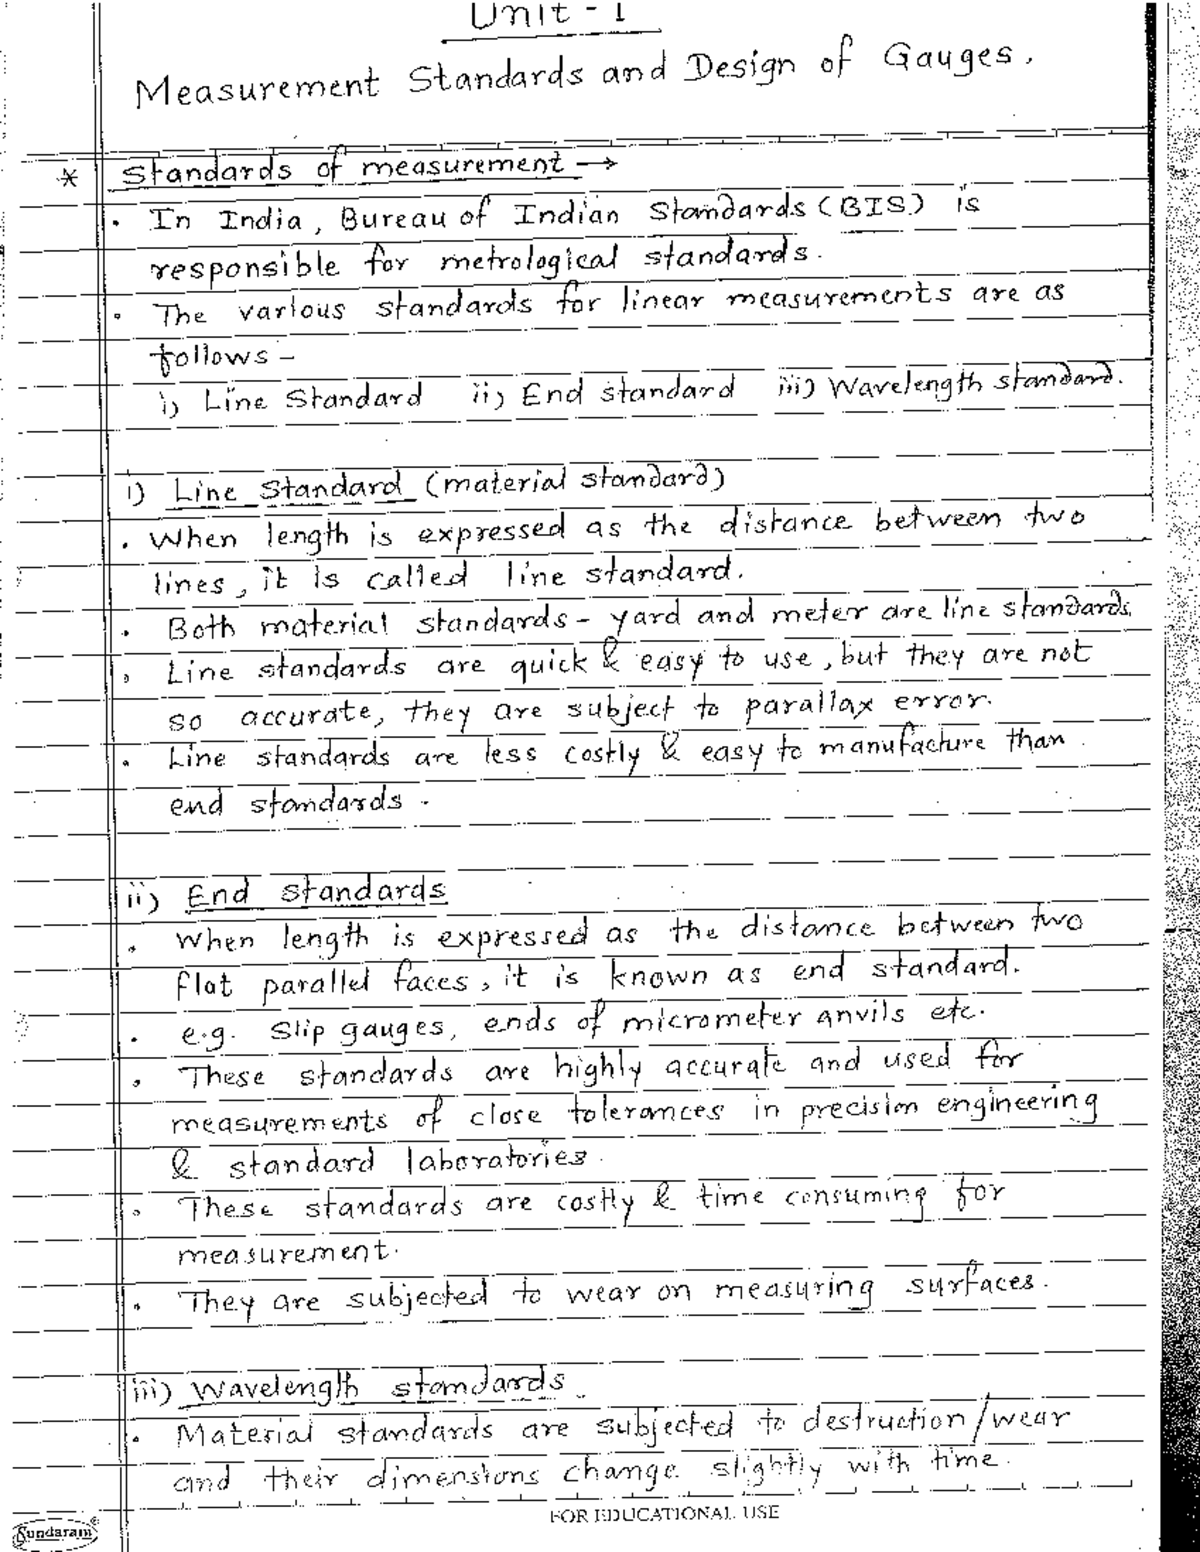 Unit - 1
Measurement Standards and Design of Gauges.
* Standards of measurement →
• In India, Bureau of Indian Standards (BIS) is
responsible for metrological standards.
• The various standards for linear measurements are as
follows -
i) Line Standard ii) End standard iii) Wavelength standard.
i) Line Standard (material standard)
• When length is expressed as the distance between two
lines, it is called line standard.
• Both material standards - yard and meter are line standards.
• Line standards are quick & easy to use, but they are not
so accurate, they are subject to parallax error.
• Line standards are less costly & easy to manufacture than
end standards.
ii) End standards
• When length is expressed as the distance between two
flat parallel faces, it is known as end standard.
• e.g. Slip gauges, ends of micrometer anvils etc.
• These standards are highly accurate and used for
measurements of close tolerances in precision engineering
& standard laboratories.
• These standards are costly & time consuming for
measurement.
• They are subjected to wear on measuring surfaces.
iii) Wavelength standards.
• Material standards are subjected to destruction/wear
and their dimensions change slightly with time.
FOR EDUCATIONAL USE
Sundaram